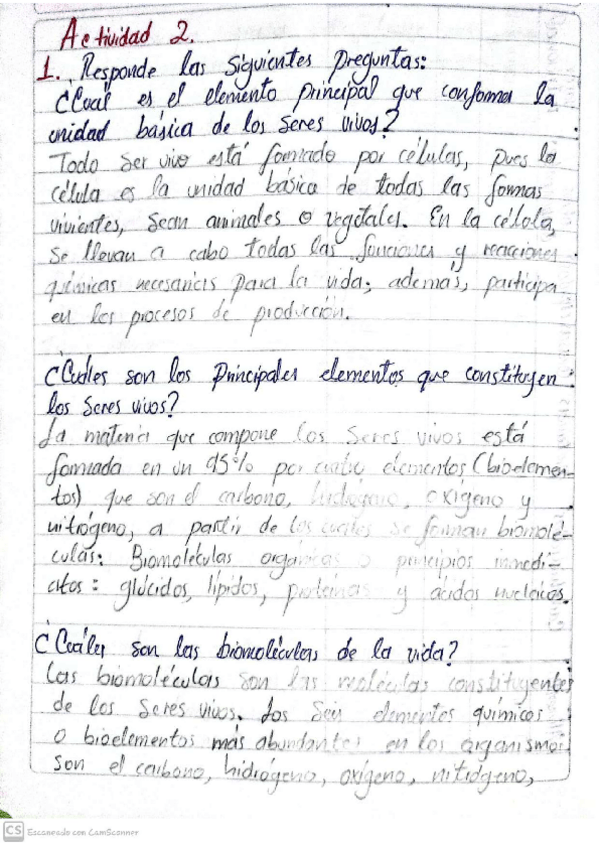 Actividad 2.
1. Responde las siguientes preguntas:
¿Cuál es el elemento principal que conforma la
unidad básica de los seres vivos?
Todo ser vivo está formado por células, pues la
célula es la unidad básica de todas las formas
vivientes, sean animales o vegetales. En la célula,
se llevan a cabo todas las funciones y reacciones
químicas necesarias para la vida; además, participa
en los procesos de producción.
¿Cuáles son los principales elementos que constituyen
los seres vivos?
La materia que compone los seres vivos está
formada en un 95% por cuatro elementos (bioelemen-
tos) que son el carbono, hidrógeno, oxígeno y
nitrógeno, a partir de los cuales se forman biomolé-
culas: Biomoléculas orgánicas o principios inmedi-
atos: glúcidos, lípidos, proteínas y ácidos nucleicos.
¿Cuáles son las biomoléculas de la vida?
Las biomoléculas son las moléculas constituyentes
de los seres vivos. Los seis elementos químicos
o bioelementos más abundantes en los organismos
son el carbono, hidrógeno, oxígeno, nitrógeno,
CS Escaneado con CamScanner